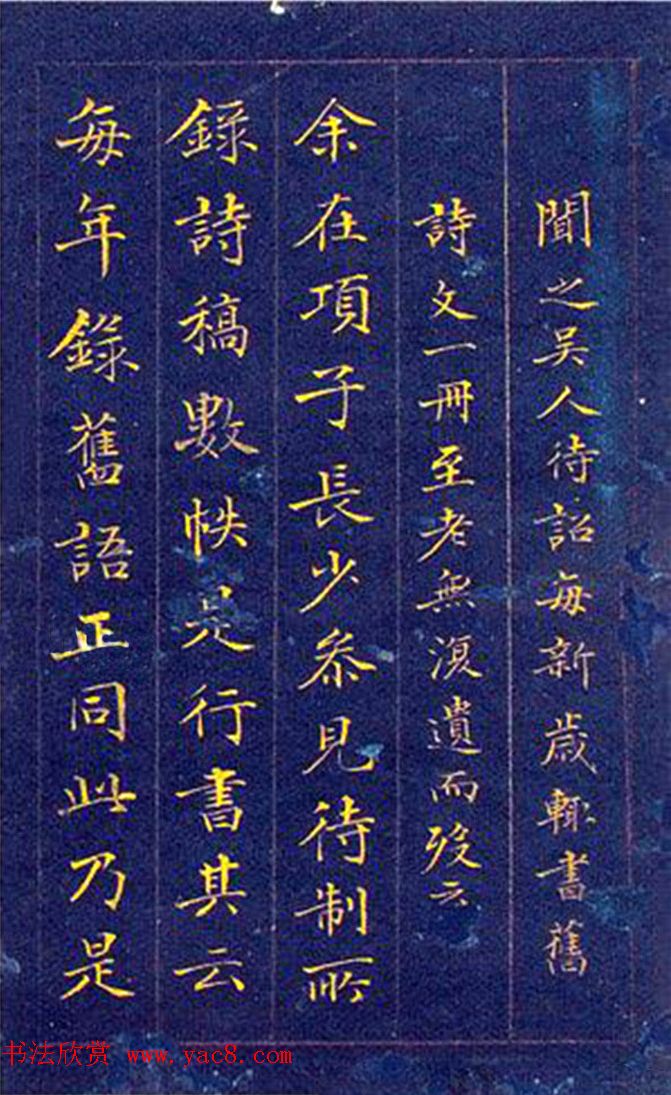 聞之吴人待詔每新歲輒書舊
詩文一冊至老無復遺而歿云
余在項子長少叅見待制所
錄詩稿數帙是行書其云
每年錄舊語正同此乃是
书法欣赏 www.yac8.com